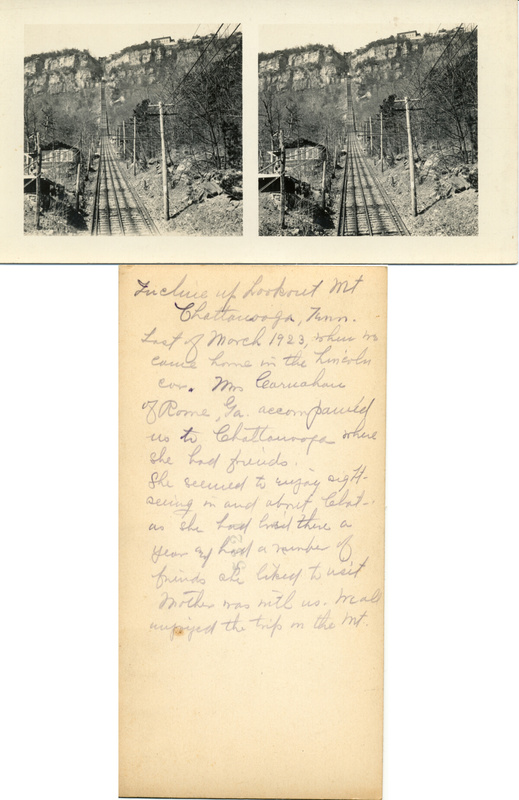 Incline up Lookout Mt
Chattanooga, Tenn.
Last of March 1923, when we
came home in the Lincoln
car. Mrs Carnahan
of Rome, Ga. accompanied
us to Chattanooga where
she had friends.
She seemed to enjoy sight-
seeing in and about Chat-
as she had lived there a
year & had a number of
friends she liked to visit
Mother was with us. We all
enjoyed the trip on the Mt.